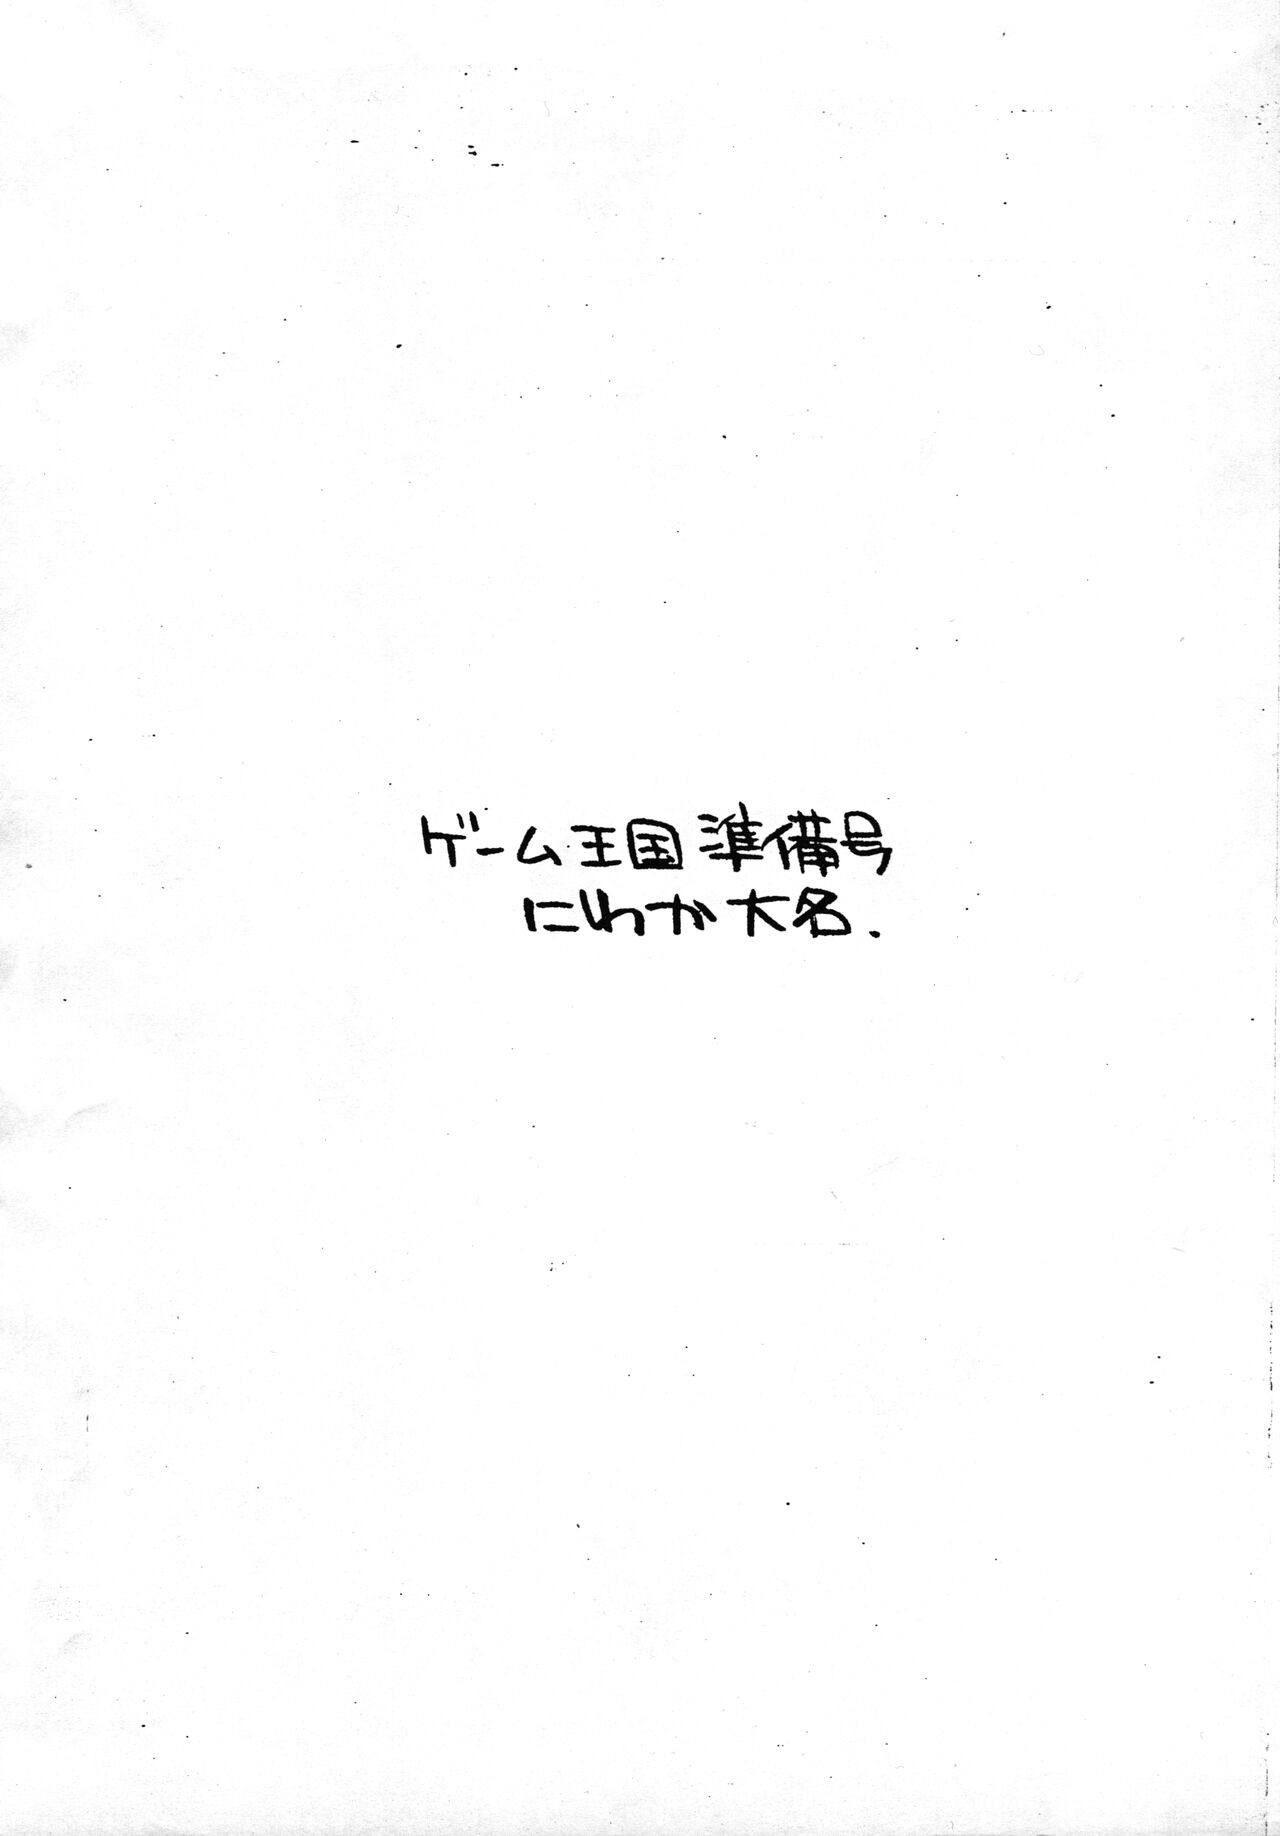 ゲーム王国 準備号
にわか大名.